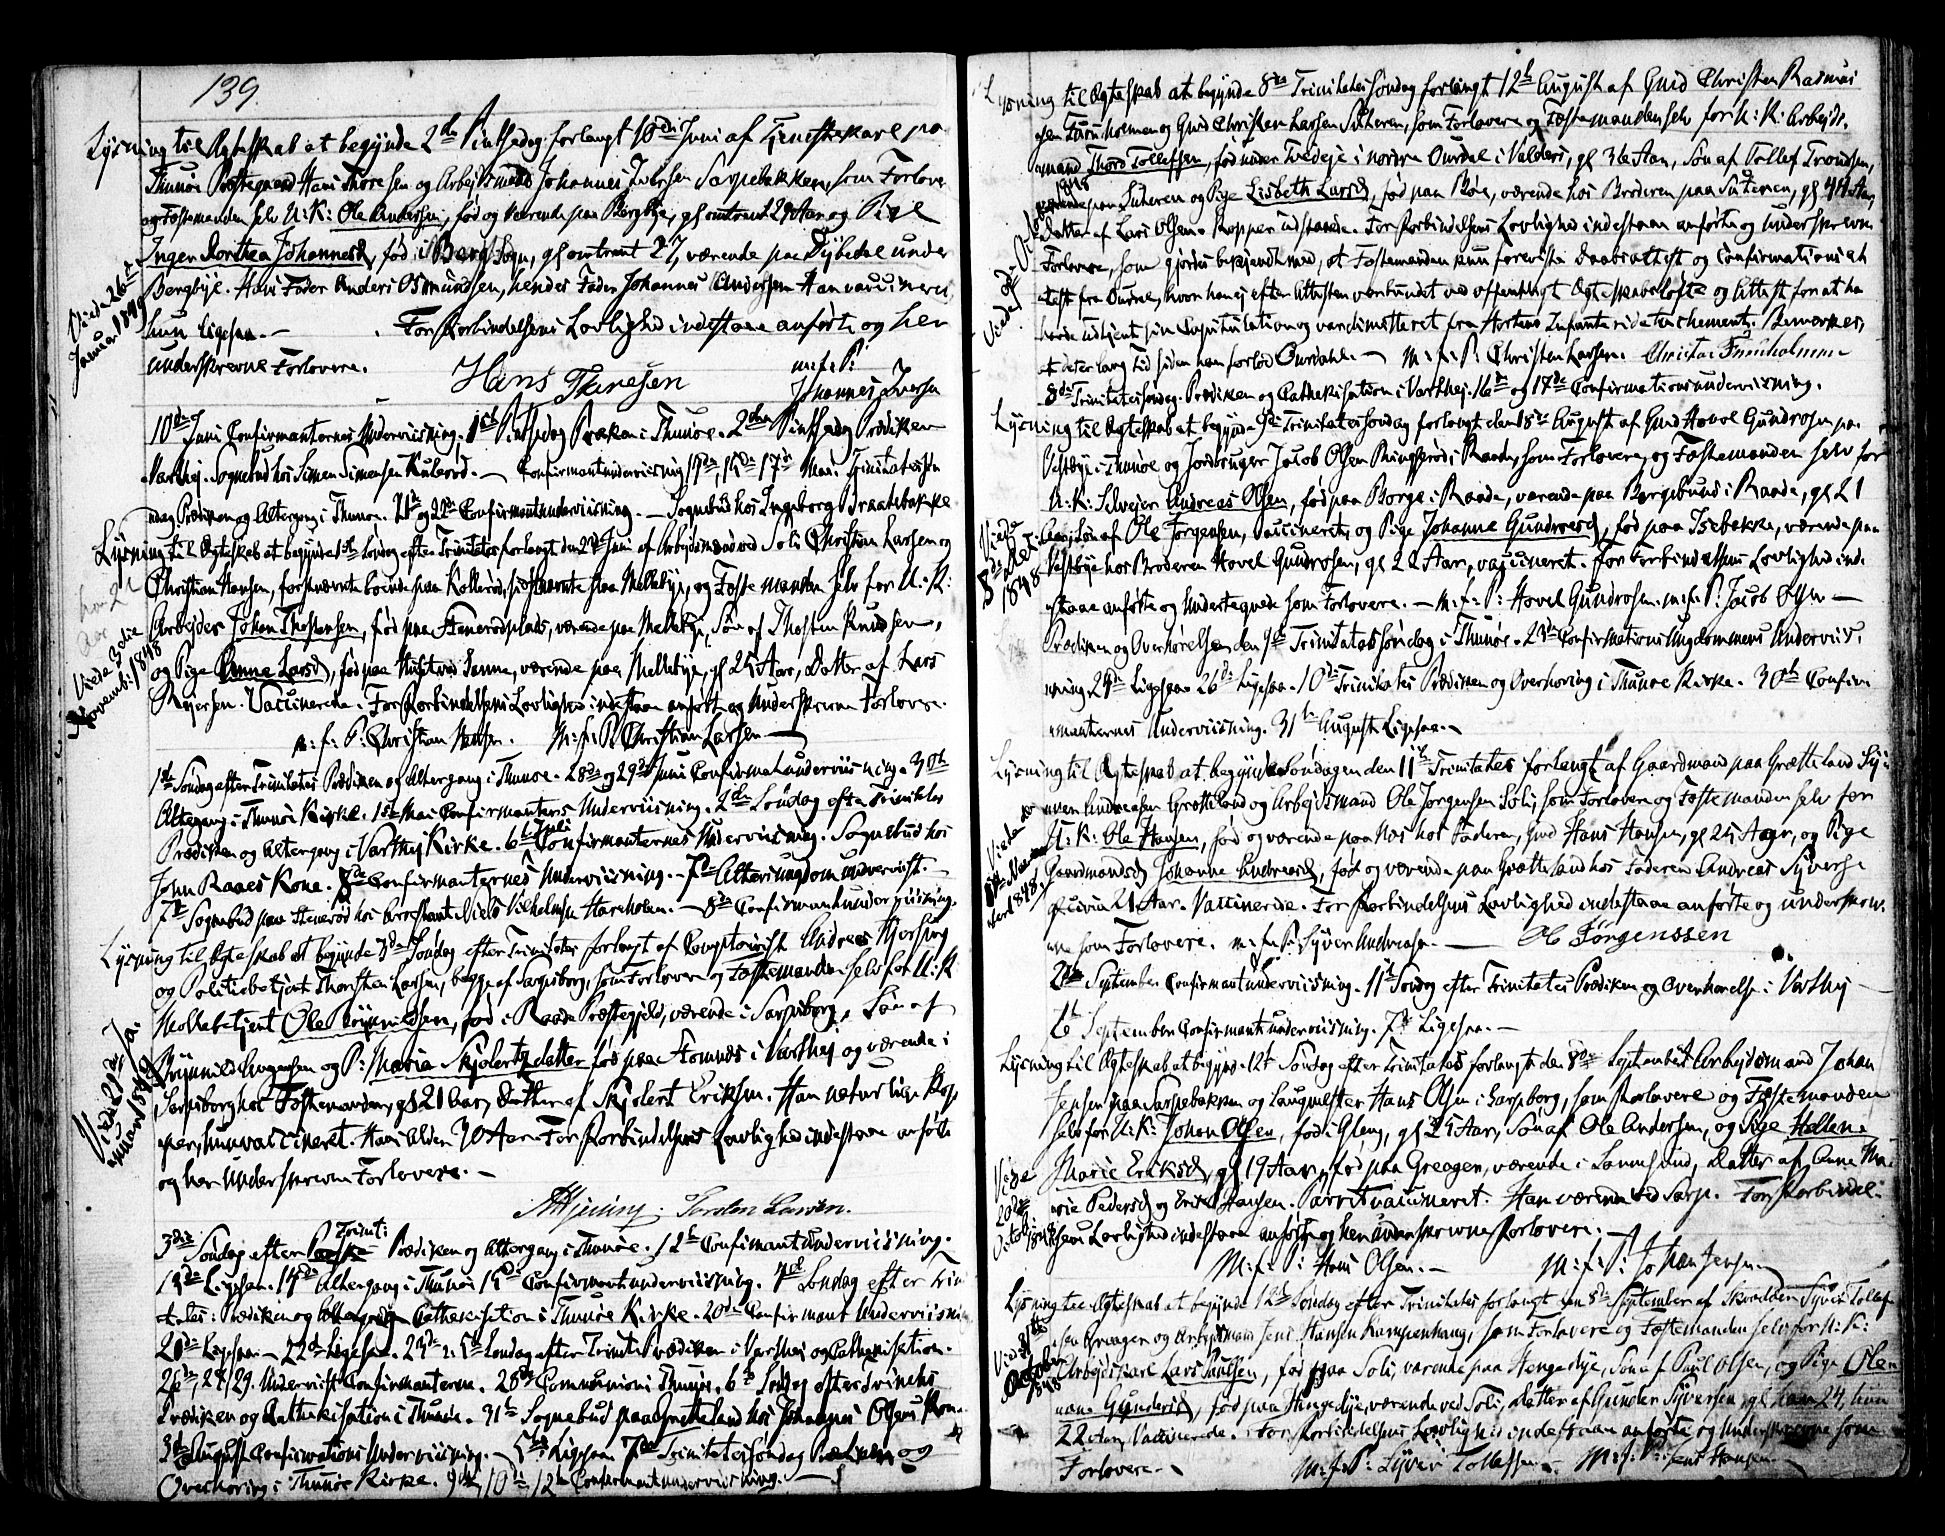 139.
Lysning til Ægteskab at begynde 2den Pintsedag forlangt 10de Juni af Tjenestekarl paa
Thunøe Præstegaard Hans Thoresen og Arbeidsmand Johannes Iversen Sarpebakken, som Forlovere
og Fæstemanden selv U: K: Ole Andersen, fød og værende paa Bergbye, gl omtrent 29 Aar og Pige
Inger Dorthea Johannesd, fød i Berg Sogn, gl omtrent 27, værende paa Dybedal under
Bergbye. Hans Fader Anders Osmundsen, hendes Fader Johannes Andersen Han vaccineret,
hun ligesaa. — For Forbindelsens Lovlighed indestaae anførte og her
underskrevne Forlovere.
Viede 26de Januar 1849
Hans Thoresen m: f: P: Johannes Iversen
10de Juni Confirmanternes Underviisning. 1ste Pintsedag Præken i Thunøe. 2den Pintsedag Prædiken
Varthej. Sognebud hos Simen Simensen Kulerød. — Confirmantunderviisning 17de
ndag Prædiken og Altergang i Thunøe. 21de og 22de Confirmantunderviisning. — Sognebud hos Ingeborg Braatebakke
Lysning til Ægteskab at begynde 1ste Søndag efter Trinitatis forlangt den 23de Juni af Arbeidsmand ved Soli Christian Larsen og
Christian Hansen, førstnævnte boende paa Kollerød, sidstnævnte paa Mellebye, og Fæstemanden selv for U: K:
Arbejder Johan Thostensen, fød paa Stenerødplads, værende paa Mellebye, Søn af Thosten Knudsen,
og Pige Anne Larsd, fød paa Mustvedt, værende paa Mellebye, gl 25 Aar, Datter af Lars
Reiersen. Vaccinerede. For Forbindelsens Lovlighed indestaae anførte og Underskrevne Forlovere.
Viede 3die Novemb: 1848
m: f: P: Christian Hansen. m: f: P. Christian Larsen —
1ste Søndag efter Trinitatis Prædiken og Altergang i Thunøe. 28de og 29de Juni Confirmantunderviisning. 30te
Altergang i Thunøe Kirke. 1ste Mai Confirmanters Underviisning. 2den Søndag efter Trinitatis
Prædiken og Altergang i Varthej Kirke. 6te Juli Confirmanternes Underviisning. Sognebud hos
John Raaes Kone. 8de Confirmanternes Underviisning. — 7de Altersungdom underviist. —
7de Sognebud paa Stenerød hos Grosshant. Niels Vilhelmsen Hareholen. — 8de Confirmantunderviisning.
Lysning til Ægteskab at begynde 3die Søndag efter Trinitatis forlangt af Comptoirist Andreas Hjorsing
og Politiebetjent Thorsten Larsen, begge af Sarpsborg, som Forlovere og Fæstemanden selv for U: K:
Moltebetjent Ole Brynildsen, fød i Raade Præstegjeld, værende i Sarpsborg, Søn af
Brynild Augensen og P: Maria Skjolertsdatter fød paa Homnes i Varthej og værende i
Sarpsborg hos Fæstemanden, gl 21 Aar, Datter af Skjolert Eriksen. Han naturlige Kop-
per, hun vaccineret. Hans Alder 30 Aar. For Forbindelsens Lovlighed indestaae anførte
og her Underskrevne Forlovere. —
AHjersing. Torsten Larsen.
3die Søndag efter Trinit: Prædiken og Altergang i Thunøe. 12te Confirmantunderviisning.
13de Ligesaa. 14de Altergang i Thunøe 15de Confirmantunderviisning. 4de Søndag efter Trini
tatis: Prædiken og Cathekisation i Thunøe Kirke. 20de Confirmant Underviisning
20de Ligesaa. — 22de Ligesaa. 23de: 5te Søndag efter Trinit: Prædiken i Varthej og Cathekisation.
26de, 28, 29. Underviist Confirmanterne. 28de Communion i Thunøe. 6te Søndag efter Trinitatis
Prædiken og Cathekisation i Thunøe. 31te Sognebud paa Grætteland hos Johannes Olsens Kone
3die August Confirmations Underviisning. — 5te Ligesaa. 7de Trinitatissøndag Prædiken og
Overhøring i Thunøe Kirke. 9de, 10de, 12te Confirmantunderviisning. —
Lysning til Ægteskab at begynde 8de Trinitatissøndag forlangt 12te August af Gmd Christen Rasmus
sen Furuholmen og Gmd Christen Larsen Suteren, som Forlovere og Fæstemanden selv for U: K: Arbejds-
mand Thord Tollefsen, fød under Tvedeje i nordre Ourdal i Valders, gl 36 Aar, Søn af Tollef Trondsen,
værende paa Suteren og Pige Lisbeth Larsd, fød paa Bøe, værende hos Broderen paa Suteren, gl 44 Aar,
Datter af Lars Olsen. Kopper udstaaede. For Forbindelsens Lovlighed indestaae anførte og underskrevne
Forlovere, som gjordes bekjendt med, at Fæstemanden kun foreviste Daabsattest og Confirmationsat
test fra Ourdal, hvor han ej efter Attesten var bundet ved offentligt Ægteskabsløfte og Attest for at ha
havde udtjent sin Capitulation og var dimitteret fra Hortens Infanteridetachement. Bemærkes,
at det er lang Tid siden han forlod Ourdahl. — m: f: P: Christen Larsen. Christen Furuholmen
8de Trinitatissøndag. Prædiken og Cathekisation i Varthej. 16de og 17de Confirmationsunderviisning.
Lysning til Ægteskab at begynde 9de Trinitatis Søndag forlangt den 18de August af Gmd Hovel Gundrosen paa
Vestbye i Thunøe og Jordbruger Jacob Olsen Ringsrød i Raade, som Forlovere, og Fæstemanden selv for
U: K: Selvejer Andreas Olsen, fød paa Borge i Raade, værende paa Bergsund i Raade, gl 21
Aar, Søn af Ole Jørgensen, Vaccineret, og Pige Johanne Gundrosd, fød paa Isebakke, værende paa
Vestbye hos Broderen Hovel Gundrosen, gl 22 Aar, vaccineret. For Forbindelsens Lovlighed ind-
estaae anførte og Undertegnede som Forlovere. — m: f: P: Hovel Gundrosen. m: f: P: Jacob Olsen —
Viede 8de 1848
Prædiken og Overhørelse den 9de Trinitatissøndag i Thunøe. 23de Confirmations Ungdommens Underviis-
ning 24de Ligesaa. 26de Ligesaa. 10de Trinitatis Prædiken og Overhøring i Thunøe Kirke. 30te Confir-
manternes Underviisning. 31te August Ligesaa. —
Lysning til Ægteskab at begynde Søndagen den 11te Trinitatis forlangt af Gaardmand paa Grætteland Sy-
ver Andreasen Grætteland og Arbejdsmand Ole Jørgensen Soli, som Forlovere og Fæstemanden selv for
U: K: Ole Hansen, fød og værende paa Nes hos Faderen, Gmd Hans Hansen, gl 25 Aar, og Pige
Gaardmandsd Johanne Andreasd, fød og værende paa Grætteland hos Faderen Andreas Syverse
21 Aar. Vaccinerede. For Forbindelsens Lovlighed indestaae anførte og underskrev-
ne som Forlovere. m: f: P: Syver Andreasen. — O Jørgenssen
2den September Confirmantunderviisning. 11te Søndag efter Trinitatis Prædiken og Overhørelse i Varthej —
6te September Confirmantunderviisning. 7de Ligesaa. —
Lysning til Ægteskab at begynde 12te Søndag efter Trinitatis forlangt den 8de September Arbejdsmand Johan
Jensen paa Sarpebakken og Laugmester Hans Olsen i Sarpsborg, som Forlovere og Fæstemanden
selv for U: K: Johan Olsen, fød i Glemg, gl 25 Aar, Søn af Ole Andersen, og Pige Hellene
Marie Eriksd, gl 19 Aar, fød paa Greager, værende i Sannesund, Datter af Anne Ma-
rie Pedersd og Erik Hansen. Parret vaccineret. Han værende ved Sarp. For Forbindel-
sens Lovlighed indestaae anførte og her underskrevne Forlovere. —
Viede 20de October 1848
M: f: P: Hans Olsen. — M: f: P: Johan Jensen.
Lysning til Ægteskab at begynde 12te Søndag efter Trinitatis forlangt den 8de September af Skrædder Syver Tollef
sen Greager og Arbejdsmand Jens Hansen Kampenhaug, som Forlovere og Fæstemanden selv for U: K:
Arbejdskarl Lars Paulsen, fød paa Soli, værende paa Hengedye, Søn af Paul Olsen, og Pige Olea
Gundersd, fød paa Hengedye, værende ved Soli, Datter af Gunder Syversen, gl han 24, hun
22 Aar, Vaccinerede. For Forbindelsens Lovlighed indestaae anførte og Underskrevne som
Forlovere. — M: f: P: Syver Tollefsen. M: f: P: Jens Hansen.
October 1848